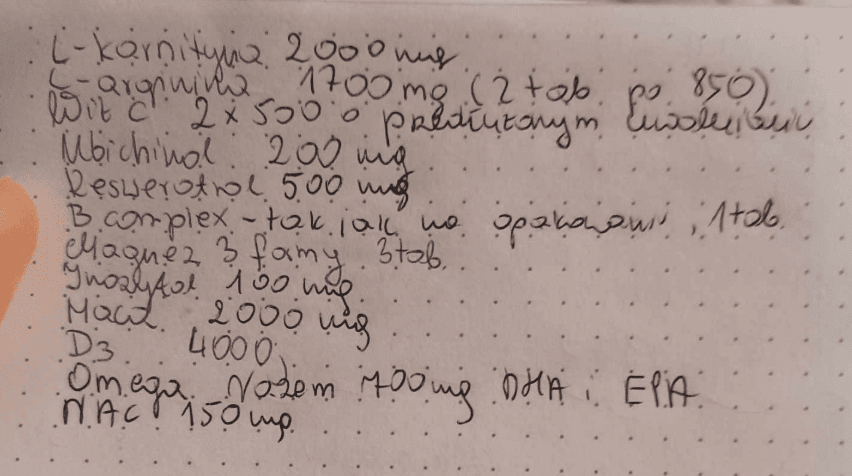 L-karnityna 2000 mg
L-arginina 1700 mg (2 tab po 850)
Wit C 2x500 o przedłużonym uwolnieniu
Ubichinol 200 mg
Reswerotrol 500 mg
B complex - tak jak na opakowaniu, 1 tab.
Magnez 3 formy 3 tab.
Inozytol 100 mg
Maca 2000 mg
D3 4000
Omega Razem 700 mg DHA i EPA
NAC 150 mg